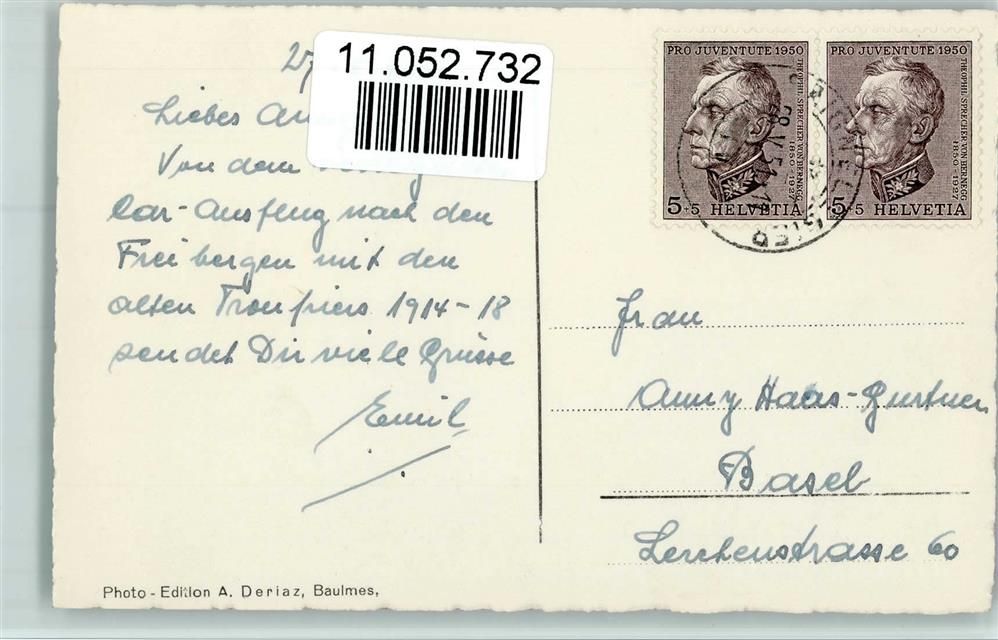 11.052.732
Liebes
Von dem
Car-Ausflug nach den
Freibergen mit den
alten Troupiers 1914-18
sendet Dir viele Grüsse
Emil
PRO JUVENTUTE 1950
THEOPHIL SPRECHER VON BERNEGG
1850-1927
5+5 HELVETIA
PRO JUVENTUTE 1950
THEOPHIL SPRECHER VON BERNEGG
1850-1927
5+5 HELVETIA
Frau
Anny Haas-Gürtner
Basel
Lerchenstrasse 60
Photo - Edition A. Deriaz, Baulmes,